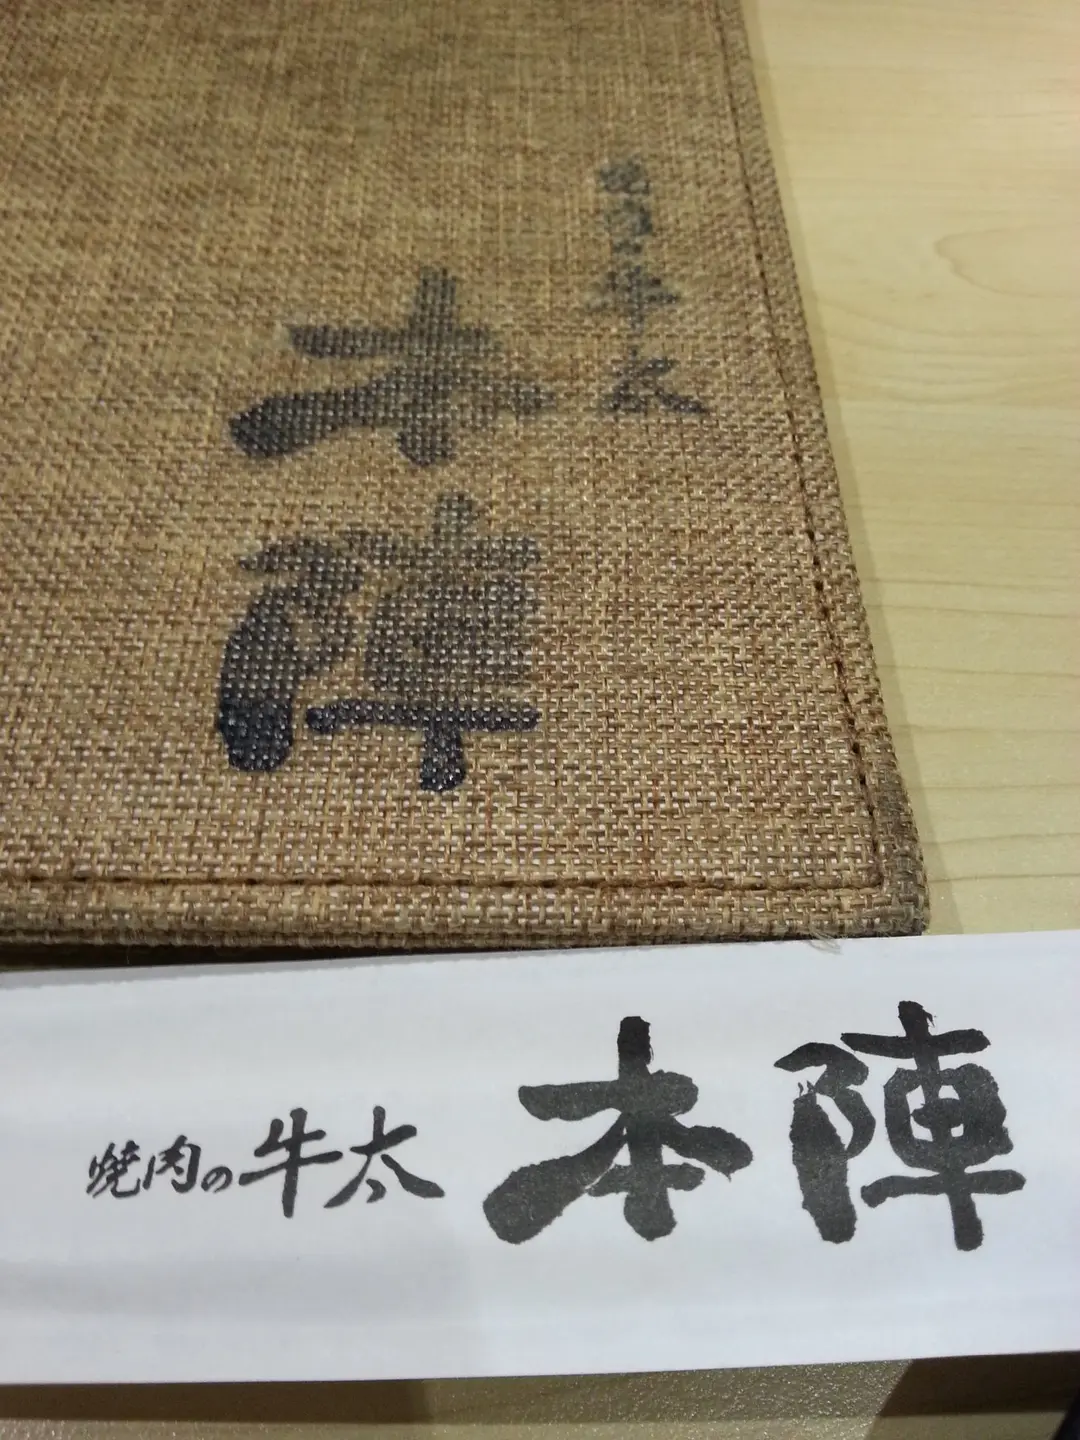 焼肉の牛太
本陣
焼肉の牛太 本陣